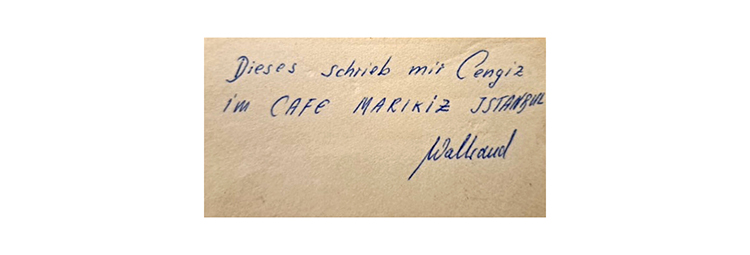 Dieses schrieb mir Cengiz
im CAFE MARIKIZ ISTANBUL
Waltraud